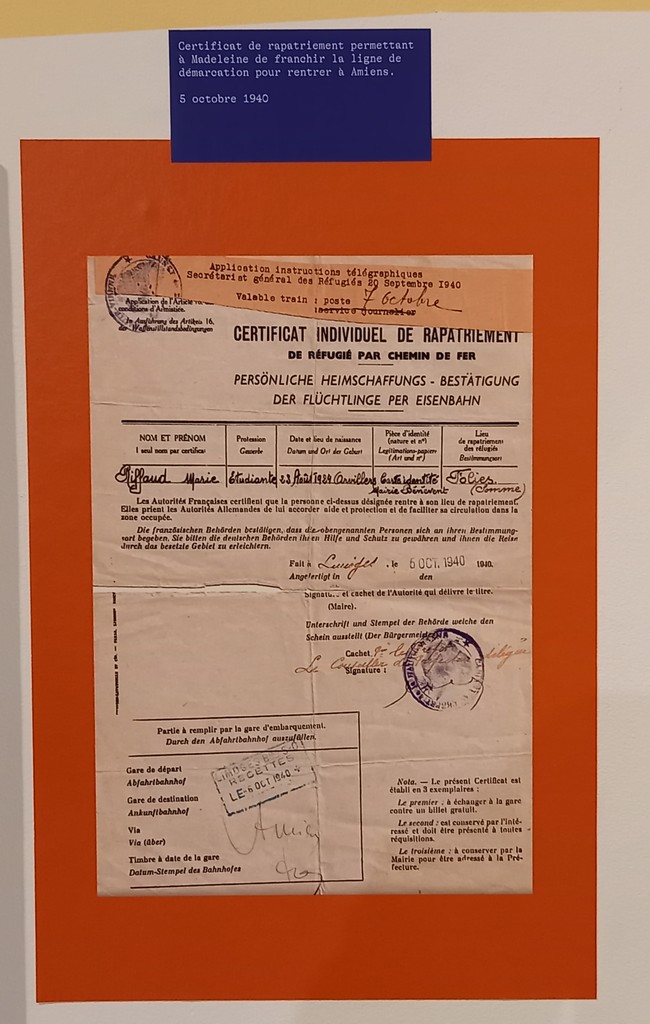 Certificat de rapatriement permettant
à Madeleine de franchir la ligne de
démarcation pour rentrer à Amiens.
5 octobre 1940
Application instructions télégraphiques
Secrétariat général des Réfugiés 20 Septembre 1940
Valable train : poste 7 octobre
service journalier
Application de l'Article
conditions d'Armistice.
In Ausführung des Artikels 16,
der Waffenstillstandsbedingungen
CERTIFICAT INDIVIDUEL DE RAPATRIEMENT
DE RÉFUGIÉ PAR CHEMIN DE FER
PERSÖNLICHE HEIMSCHAFFUNGS - BESTÄTIGUNG
DER FLÜCHTLINGE PER EISENBAHN
NOM ET PRÉNOM
1 seul nom par certificat
Profession
Gewerbe
Date et lieu de naissance
Datum und Ort der Geburt
Pièce d'identité
(nature et n°)
Legitimations-papiere
(Art und n°)
Lieu
de rapatriement
des réfugiés
Bestimmungsort
Riffaud Marie Etudiante 23 Août 1924 Arvillers Carte identité Folies
Mairie Bénévent (Somme)
Les Autorités Françaises certifient que la personne ci-dessus désignée rentre à son lieu de rapatriement.
Elles prient les Autorités Allemandes de lui accorder aide et protection et de faciliter sa circulation dans la
zone occupée.
Die französischen Behörden bestätigen, dass die obengenannten Personen sich an ihren Bestimmung-
sort begeben. Sie bitten die deutschen Behörden ihnen Hilfe und Schutz zu gewähren und ihnen die Reise
durch das besetzte Gebiet zu erleichtern.
Fait à , le 5 OCT. 1940 1940.
Angefertigt in den
Signature et cachet de l'Autorité qui délivre le titre.
(Maire).
Unterschrift und Stempel der Behörde welche den
Schein ausstellt (Der Bürgermeister)
Cachet,
Le Conseiller de délégué
Signature :
Partie à remplir par la gare d'embarquement.
Durch den Abfahrtbahnhof auszufüllen.
Gare de départ
Abfahrtbahnhof
LIMOGES
RECETTES
LE -6 OCT 1940
Gare de destination
Ankunftbahnhof
Via
Via (über)
Amiens
Timbre à date de la gare
Datum-Stempel des Bahnhofes
Nota. — Le présent Certificat est
établi en 3 exemplaires :
Le premier : à échanger à la gare
contre un billet gratuit.
Le second : est conservé par l'inté-
ressé et doit être présenté à toutes
réquisitions.
Le troisième : à conserver par la
Mairie pour être adressé à la Pré-
fecture.